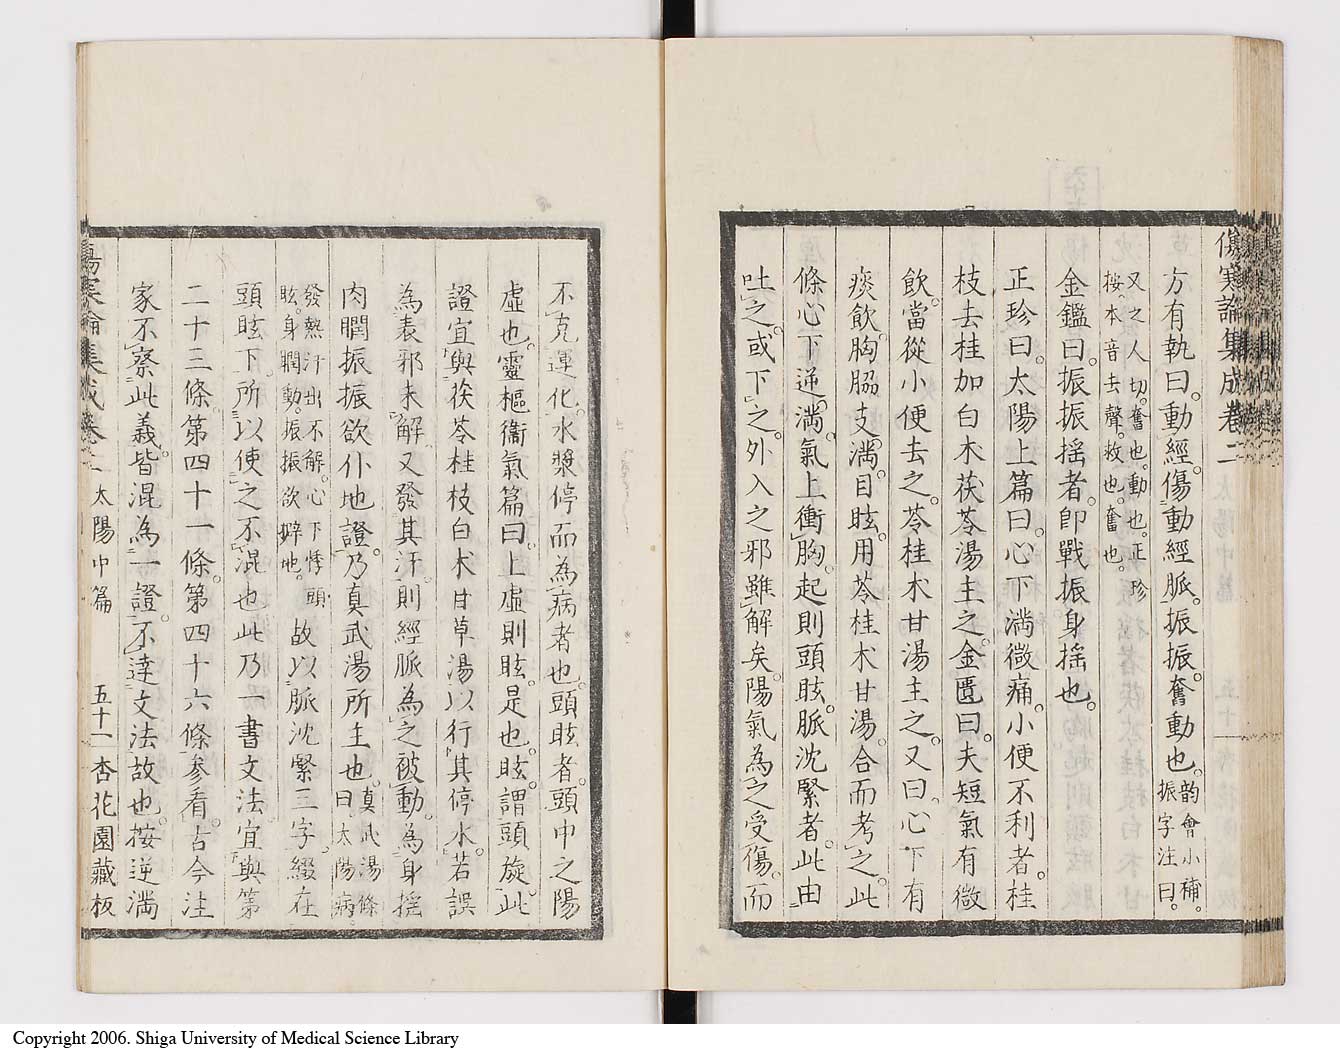 傷寒論集成卷二
方有執曰。動經。傷動經脈。振振。奮動也。韵會小補。振字注曰。
又之人切。奮也。動也。正珍按。本音去聲。救也。奮也。
金鑑曰。振振搖者。卽戰振身搖也。
正珍曰。太陽上篇曰。心下滿微痛。小便不利者。桂
枝去桂加白朮茯苓湯主之。金匱曰。夫短氣有微
飮。當從小便去之。苓桂朮甘湯主之。又曰。心下有
痰飮。胸脇支滿。目眩。用苓桂朮甘湯。合而考之。此
條心下逆滿。氣上衝胸。起則頭眩。脈沈緊者。此由
吐之。或下之。外入之邪雖解矣。陽氣爲之受傷。而
不克運化。水漿停而為病者也。頭眩者。頭中之陽
虛也。靈樞衞氣篇曰。上虛則眩。是也。眩。謂頭旋。此
證宜與茯苓桂枝白朮甘草湯以行其停水。若誤
為表邪未解。又發其汗。則經脈為之被動。為身搖
肉瞤振振欲仆地證。乃真武湯所主也。真武湯條曰。太陽病
發熱汗出不解。心下悸。頭眩。身瞤動。振振欲擗地。故以脈沈緊三字綴在
頭眩下。所以使之不混也。此乃一書文法。宜與第
二十三條。第四十一條。第四十六條參看。古今注
家不察此義。皆混為一證。不達文法故也。按逆滿
傷寒論集成卷二 太陽中篇 五十一 杏花園藏板
Copyright 2006. Shiga University of Medical Science Library